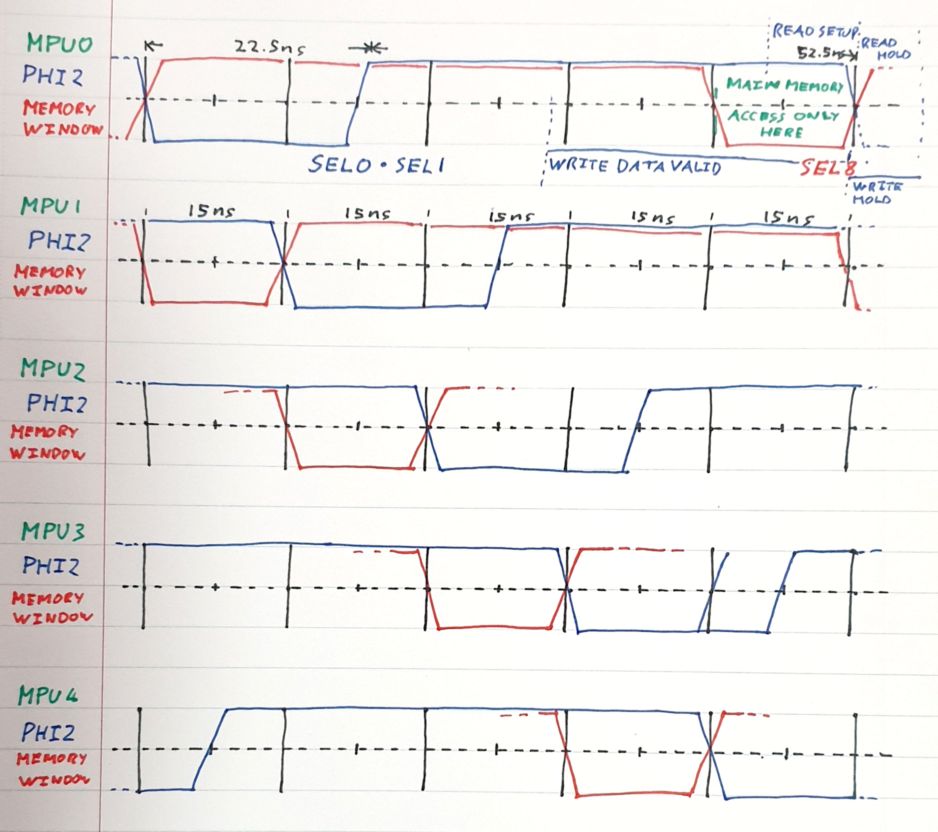 MPU0
PHI2
MEMORY
WINDOW
22.5ns
READ SETUP
52.5ns
READ
HOLD
MAIN MEMORY
ACCESS ONLY
HERE
SEL0 · SEL1
WRITE DATA VALID
SEL8
WRITE
HOLD
MPU1
PHI2
MEMORY
WINDOW
15ns
15ns
15ns
15ns
15ns
MPU2
PHI2
MEMORY
WINDOW
MPU3
PHI2
MEMORY
WINDOW
MPU4
PHI2
MEMORY
WINDOW